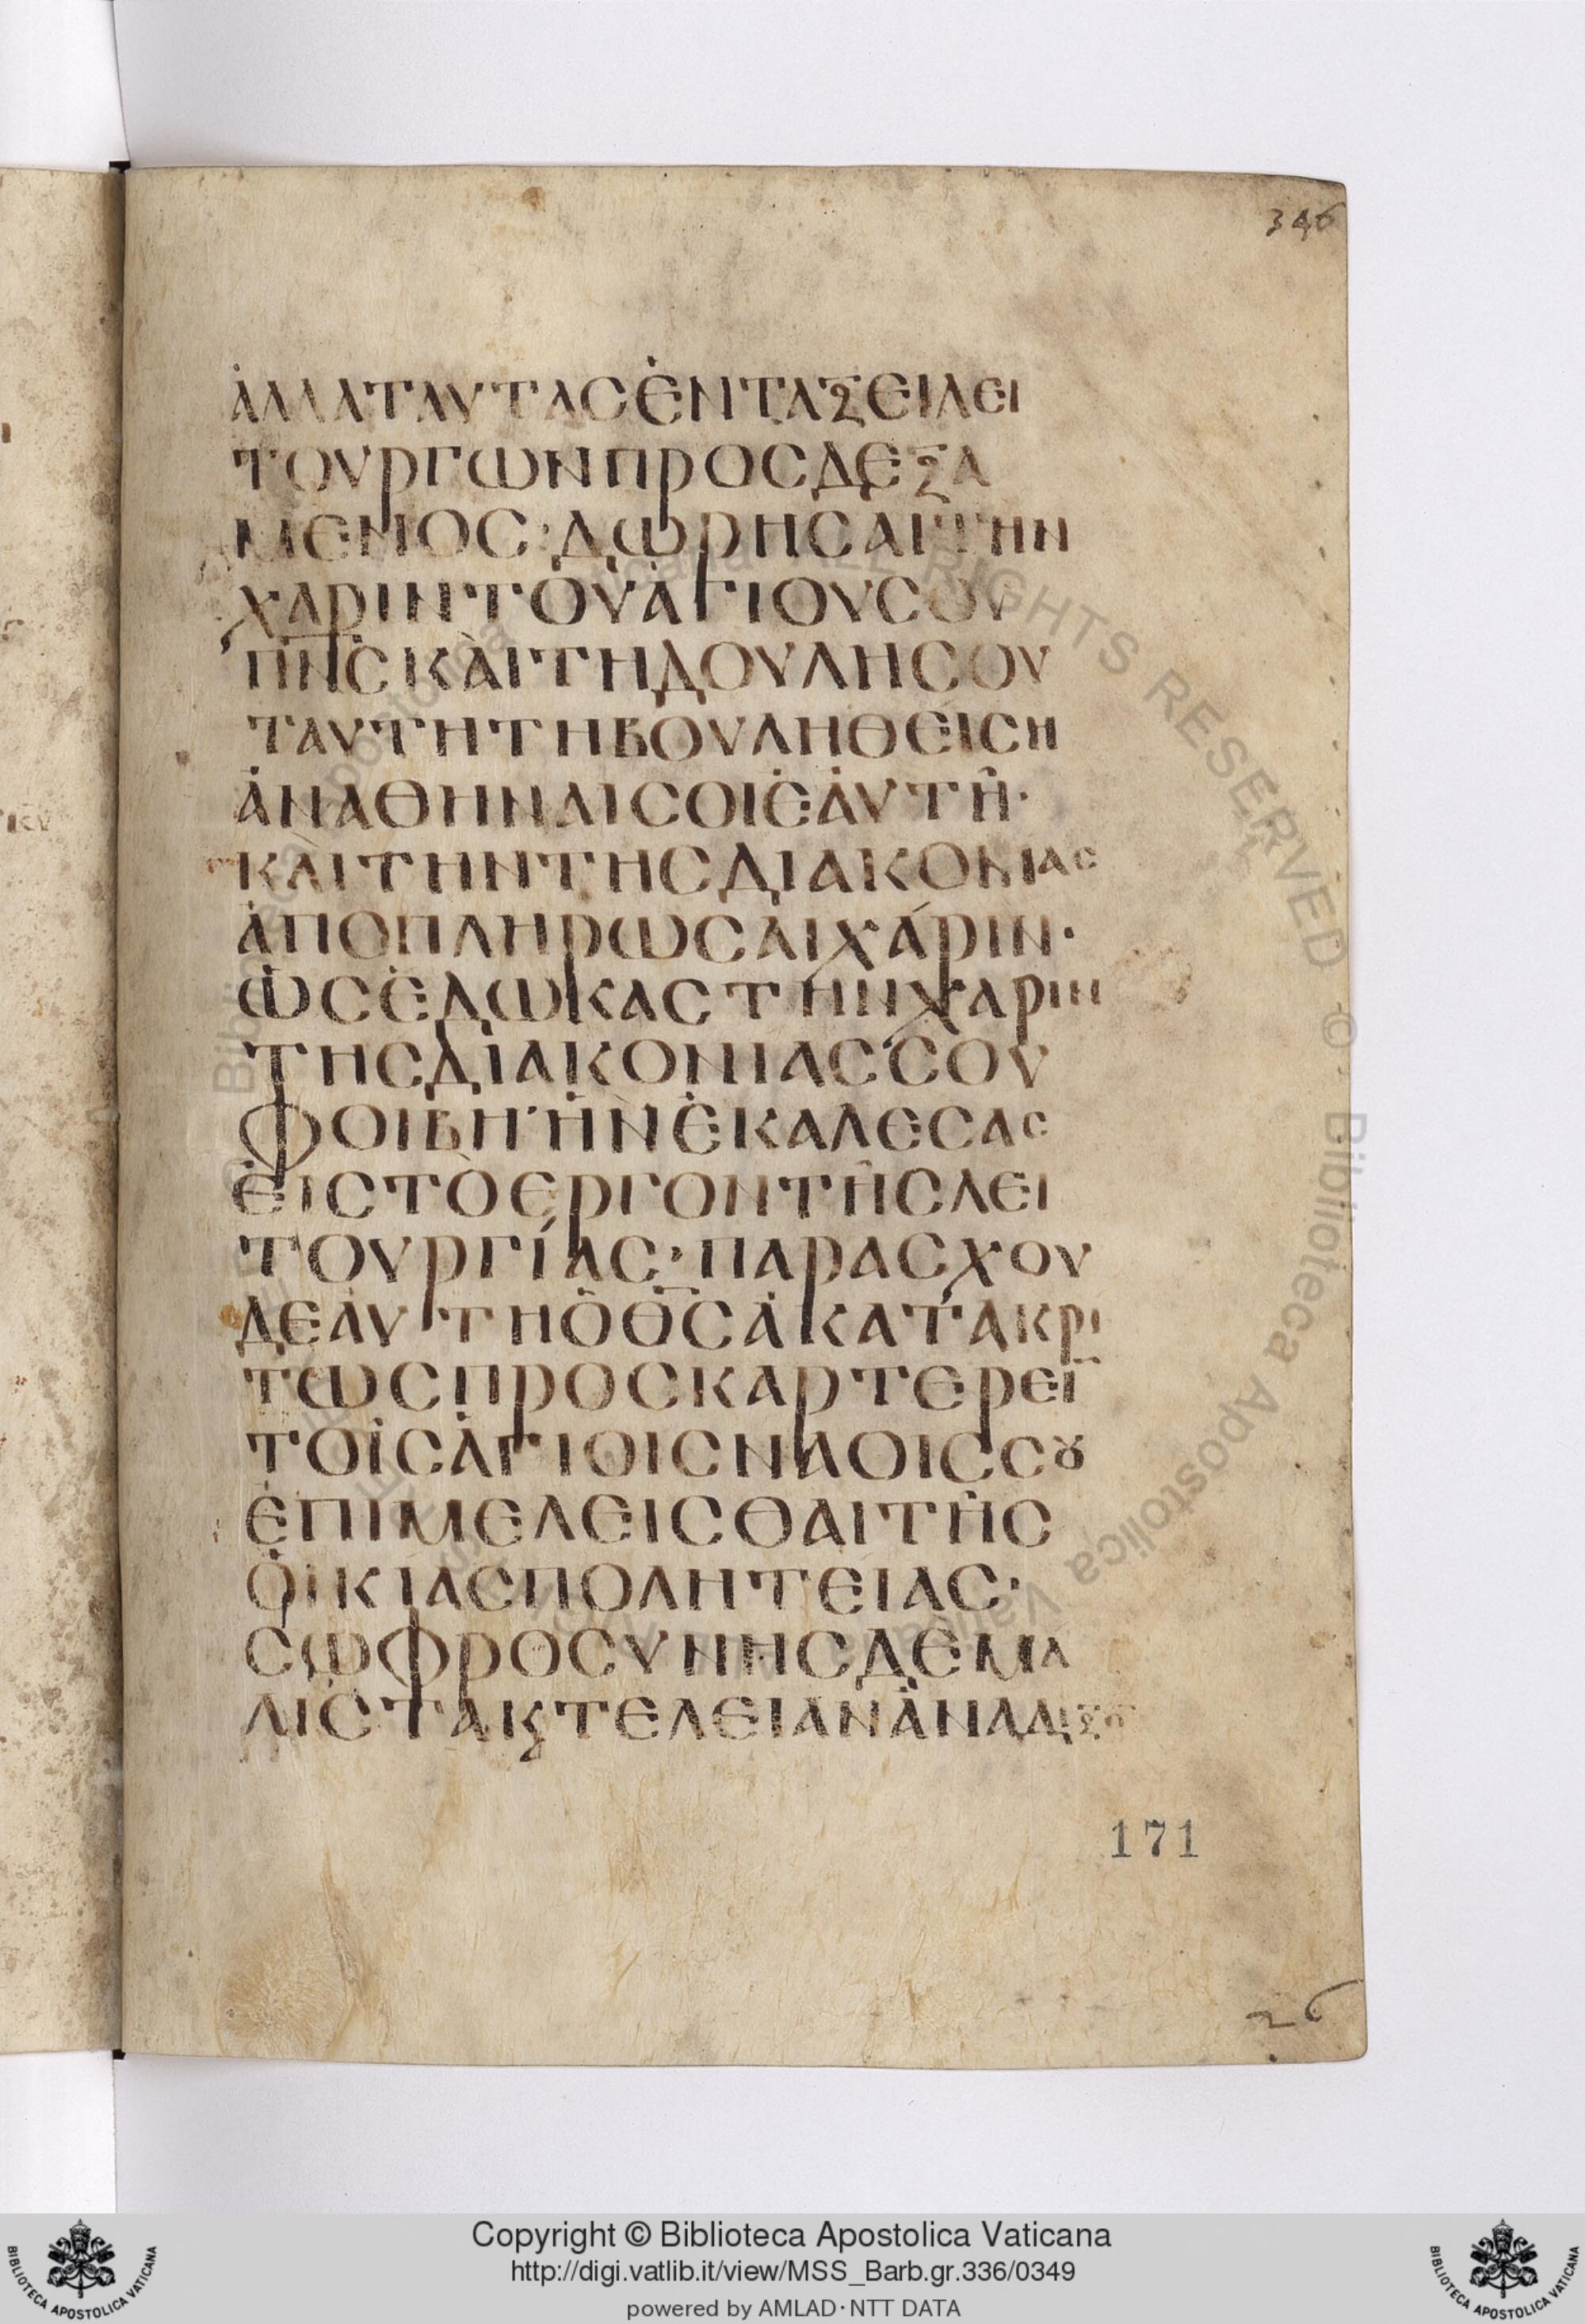 346
ἀλλὰ ταύτας ἐν τάξει λει
τουργῶν προσδεξά
μενος: δώρησαι τὴν
χάριν τοῦ ἁγίου σου
πν̅ς καὶ τῇ δούλῃ σου
ταύτῃ τῇ βουληθείσῃ
ἀναθῆναί σοι ἑαυτῆ·
καὶ τὴν τῆς διακονίας
ἀποπληρῶσαι χάριν·
ὡς ἔδωκας τὴν χάριν
τῆς διακονίας σου
Φοίβη ἣν ἐκάλεσας
εἰς τὸ ἔργον τῆς λει
τουργίας· παράσχου
δὲ αὐτῇ ὁ θ̅ς ἀκατακρί
τως προσκαρτερεῖ̅
τοῖς ἁγίοις ναοῖς σȣ
ἐπιμελεῖσθαι τῆς
οἰκίας πολητείας·
σωφροσύνης δὲ μά
λιστα κ̗ τελείαν ἀνάδειξο̅
171
26
Copyright © Biblioteca Apostolica Vaticana
http://digi.vatlib.it/view/MSS_Barb.gr.336/0349
powered by AMLAD·NTT DATA
BIBLIOTECA APOSTOLICA VATICANA
BIBLIOTECA APOSTOLICA VATICANA